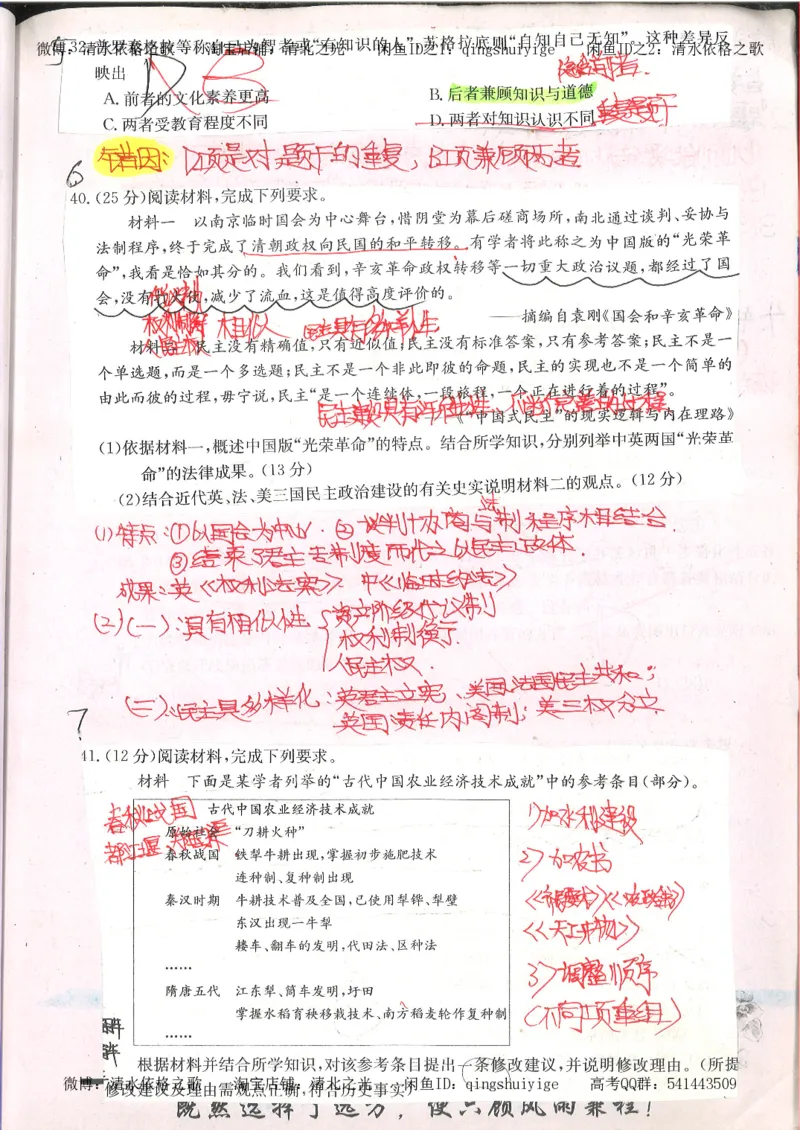 5.
32. 普罗泰格拉等称自己为智者或“有知识的人”,苏格拉底则“自知自己无知”。这种差异反
微博:清水依格之歌 淘宝店铺:清北之光 闲鱼ID之1:qingshuiyige 闲鱼ID之2:清水依格之歌
映出
A.前者的文化素养更高 B.后者兼顾知识与道德
C.两者受教育程度不同 D.两者对知识认识不同
错因:D项是对题干的重复,B项兼顾两者
6
40.(25分)阅读材料,完成下列要求。
材料一 以南京临时国会为中心舞台,惜阴堂为幕后磋商场所,南北通过谈判、妥协与
法制程序,终于完成了清朝政权向民国的和平转移。有学者将此称之为中国版的“光荣革
命”,我看是恰如其分的。我们看到,辛亥革命政权转移等一切重大政治议题,都经过了国
会,没有打大仗,减少了流血,这是值得高度评价的。
——摘编自袁刚《国会和辛亥革命》
权利制衡 相似
民主具有多样性
人民主权
材料二 民主没有精确值,只有近似值;民主没有标准答案,只有参考答案;民主不是一
个单选题,而是一个多选题;民主不是一个非此即彼的命题,民主的实现也不是一个简单的
由此而彼的过程,毋宁说,民主“是一个连续体,一段旅程,一个正在进行着的过程”。
《“中国式民主”的现实逻辑与内在理路》
(1)依据材料一,概述中国版“光荣革命”的特点。结合所学知识,分别列举中英两国“光荣革
命”的法律成果。(13分)
(2)结合近代英、法、美三国民主政治建设的有关史实说明材料二的观点。(12分)
(1)特点:①以国会为中心.②谈判协商与法制程序相结合
③结束了君主专制度而代之以民主政体.
成果:英《权利法案》 中《临时约法》
(2)(一):具有相似性 资产阶级代议制
权利制衡
人民主权
(二):民主具多样化:英君主立宪、美国、法国民主共和;
英国责任内阁制;美三权分立
7
41.(12分)阅读材料,完成下列要求。
材料 下面是某学者列举的“古代中国农业经济技术成就”中的参考条目(部分)。
春秋战国
都江堰,郑国渠
古代中国农业经济技术成就
原始社会 “刀耕火种”
春秋战国 铁犁牛耕出现,掌握初步施肥技术
连种制、复种制出现
秦汉时期 牛耕技术普及全国,已使用犁铧、犁壁
东汉出现一牛犁
耧车、翻车的发明,代田法、区种法
……
隋唐五代 江东犁、筒车发明,圩田
掌握水稻育秧移栽技术、南方稻麦轮作复种制
……
1)加水利建设
2)加农书
《齐民要术》《农政全书》
《天工开物》
3)调整顺序
(不同项重组)
根据材料并结合所学知识,对该参考条目提出一条修改建议,并说明修改理由。(所提
修改建议及理由需观点正确,符合历史事实)
微博:清水依格之歌 淘宝店铺:清北之光 闲鱼ID:qingshuiyige 高考QQ群:541443509
既然选择了远方,便只顾风雨兼程!